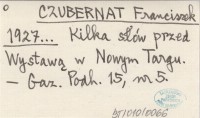 CZUBERNAT Franciszek
1927... Kilka słów przed
Wystawą w Nowym Targu.
— Gaz. Podh. 15, nr 5.
bj/010/0066